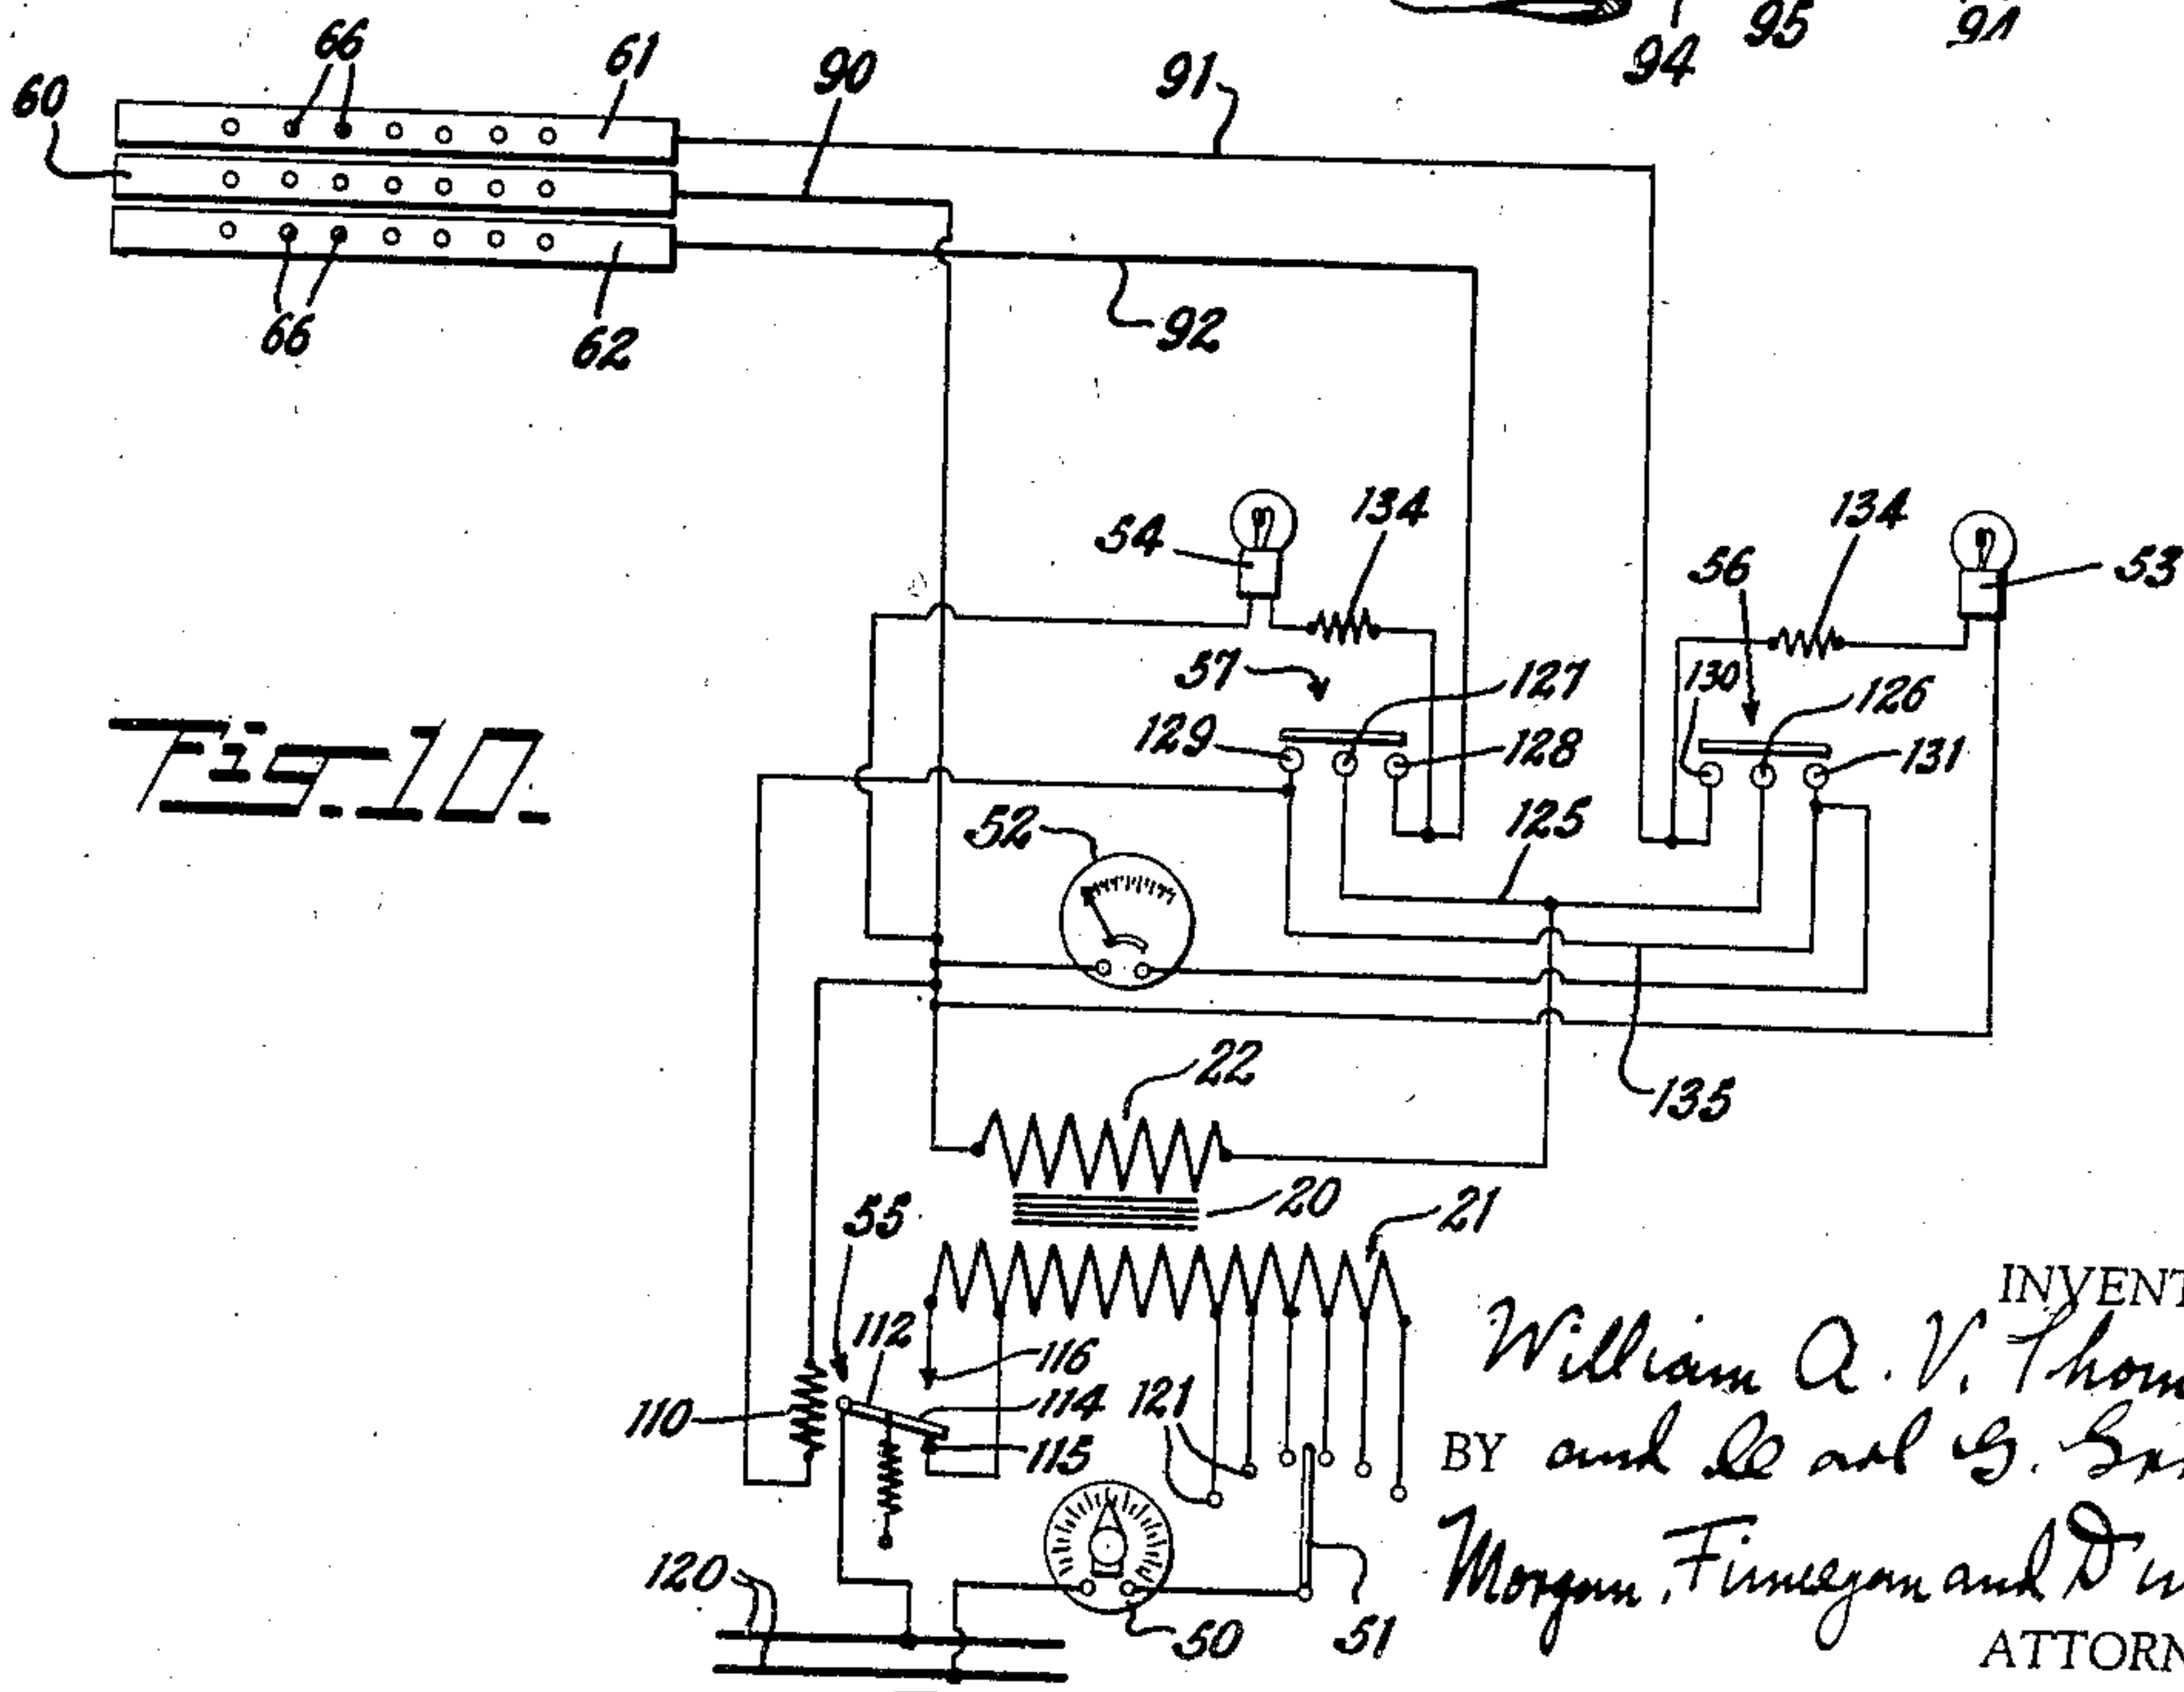 94 95 94
66 61 90 91
60
66 62 92
54 134 134 56 53
57 127 130 126
129 128 131
Fig. 10.
52 125
22
135
20
55 21
112 116
110 114 121
115
120 50 51
INVENT
William A. V. Thom
BY and
Morgan, Finnegan and D
ATTORN